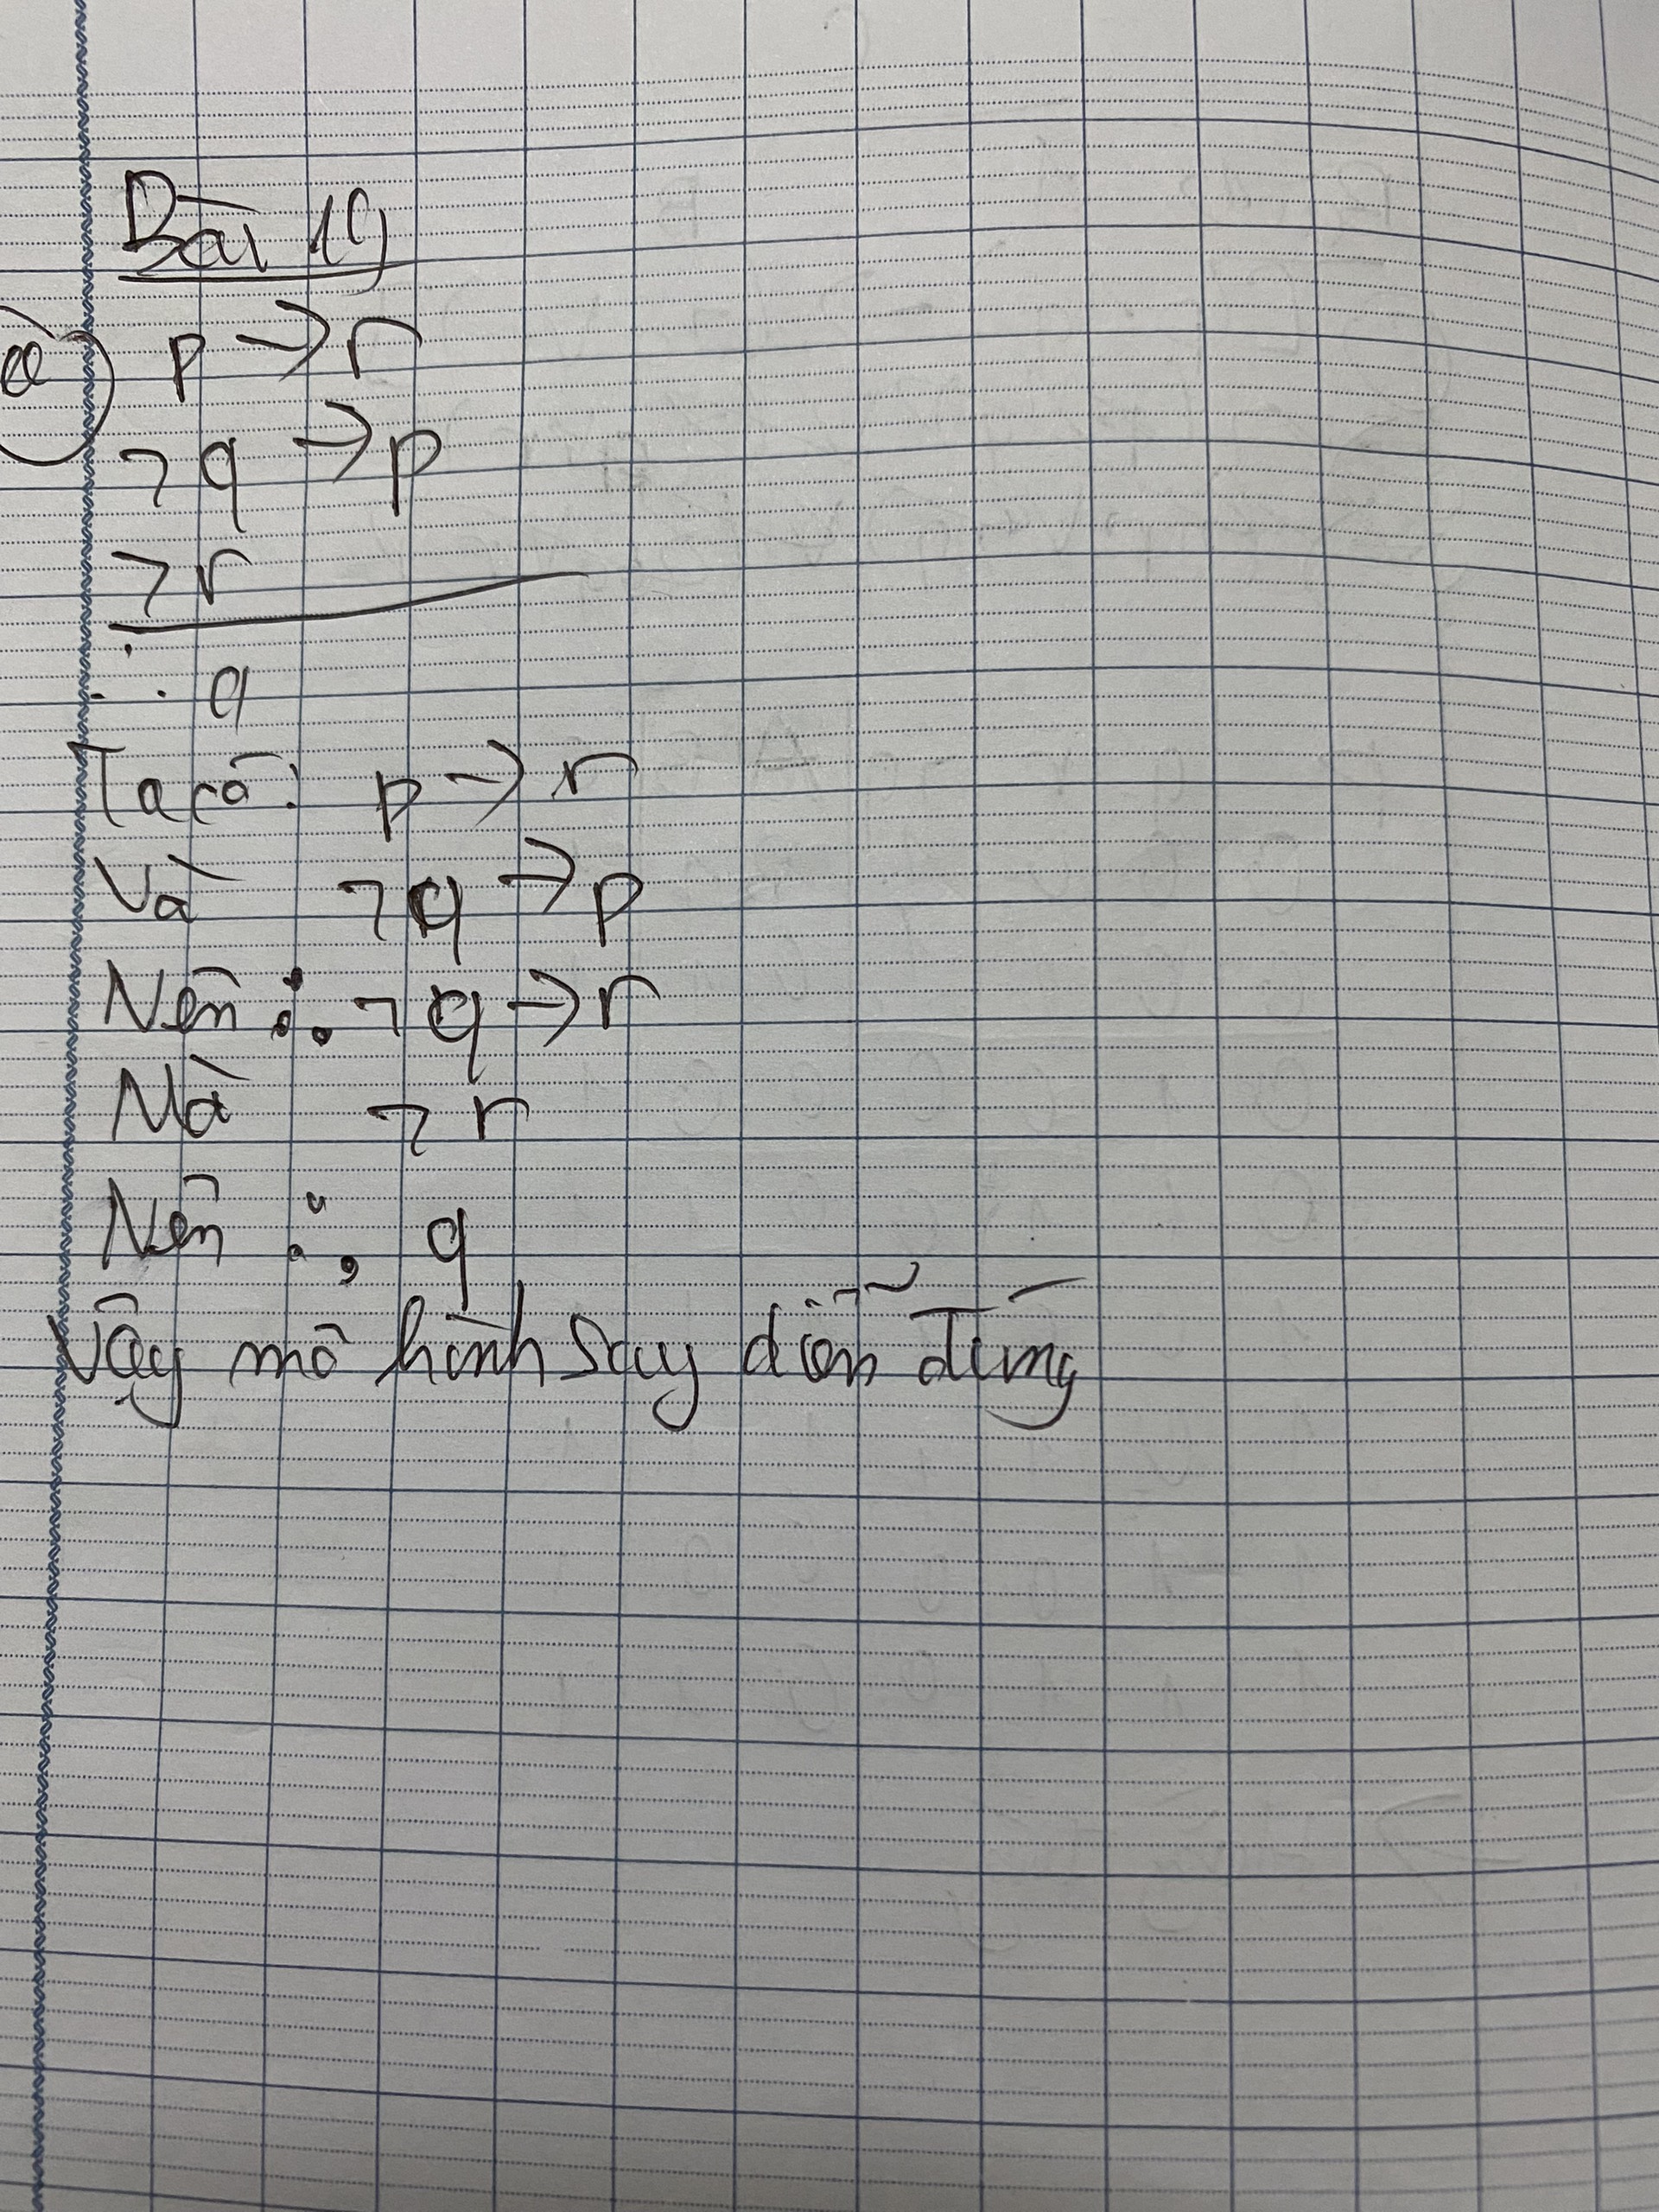 Bài 19
a) p → r
¬q → p
¬r
∴ q
Ta có: p → r
Và ¬q → p
Nên ∴ ¬q → r
Mà ¬r
Nên ∴ q
Vậy mô hình suy diễn đúng